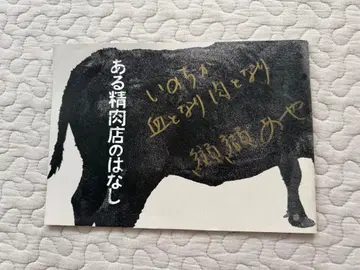 ある精肉店のはなし
いのちが
血となり肉となり
纐纈あや